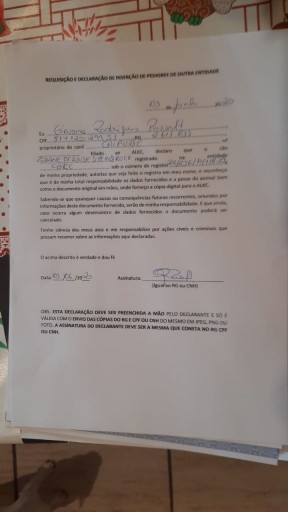 REQUISIÇÃO E DECLARAÇÃO DE INSERÇÃO DE PEDIGREE DE OUTRA ENTIDADE
Eu Rodrigues
CPF RG
proprietário do canil
filiado ao ALKC, declaro que o cão
registrado na entidade
sob o número de registro
de minha propriedade, autorizo que seja feito o registro em meu nome, e reconheço
que é de minha total responsabilidade os dados fornecidos e a posse do animal bem
como o documento original em mãos, onde forneço a cópia digital para o ALKC.
Sabendo se que quaisquer causas ou consequências futuras recorrentes, oriundos por
informações deste documento fornecido, serão de minha responsabilidade. E que ainda,
caso ocorra algum desmembro de dados fornecidos o documento poderá ser
cancelado.
Tenho ciência dos meus atos e me responsabilizo por ações cíveis e criminais que
possam recorrer sobre as informações aqui declaradas.
O acima descrito é verdade e dou fé
Data Assinatura
(Igual ao RG ou CNH)
OBS. ESTA DECLARAÇÃO DEVE SER PREENCHIDA A MÃO PELO DECLARANTE E SÓ É
VÁLIDA COM O ENVIO DAS CÓPIAS DO RG E CPF OU CNH DO MESMO EM JPEG, PNG OU
FOTO. A ASSINATURA DO DECLARANTE DEVE SER A MESMA QUE CONSTA NO RG CPF
OU CNH.